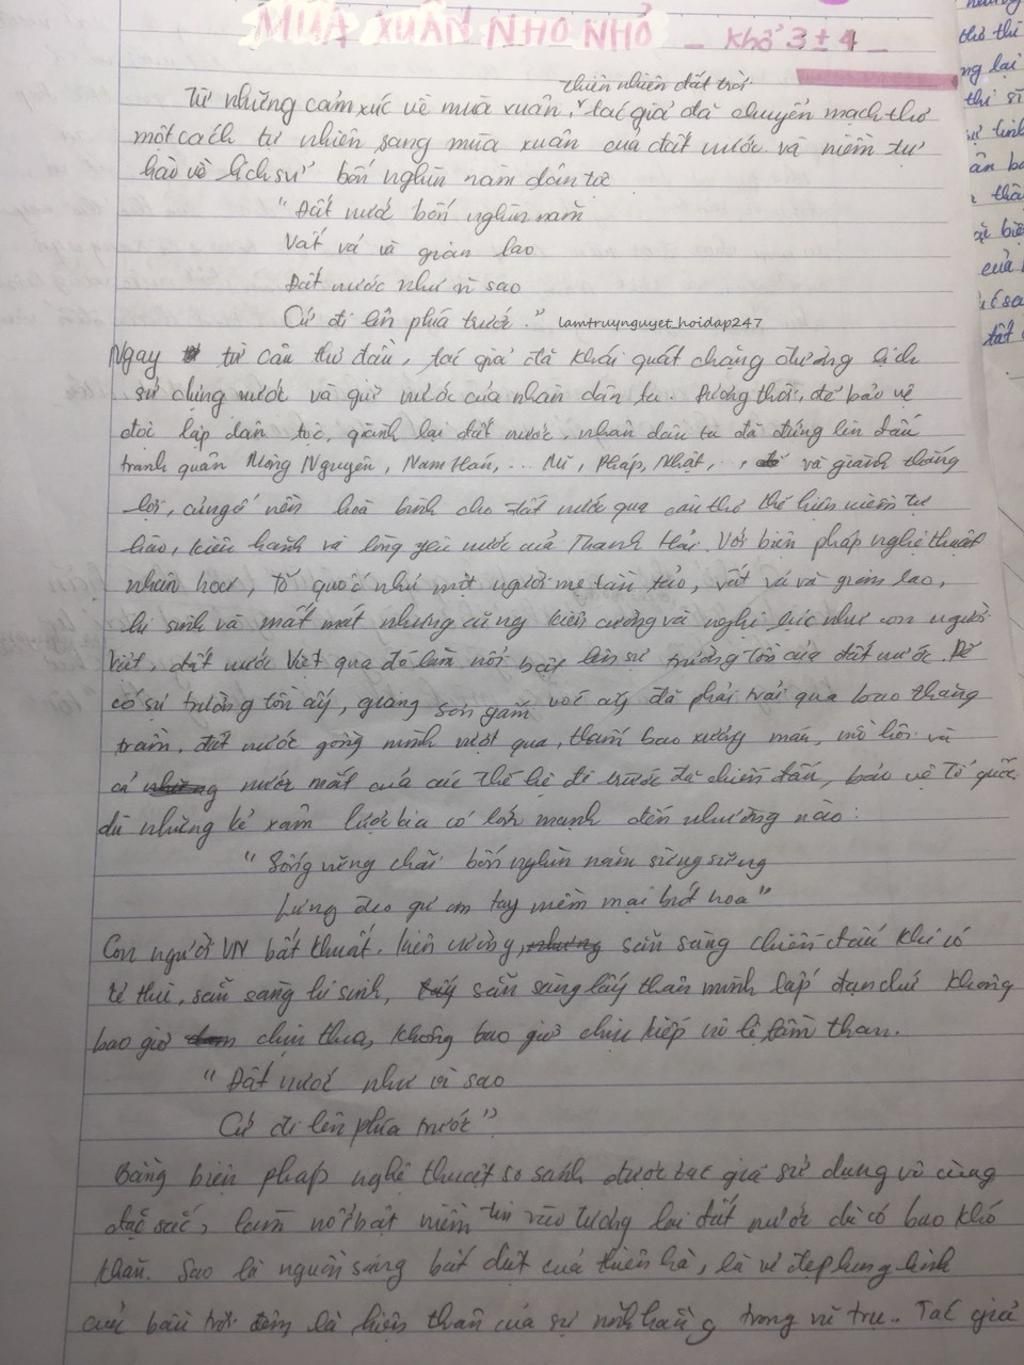 MÙA XUÂN NHO NHỎ - Khổ 3 + 4 -
thiên nhiên đất trời
Từ những cảm xúc về mùa xuân, tác giả đã chuyển mạch thơ
một cách tự nhiên sang mùa xuân của đất nước và niềm tự
hào về lịch sử bốn nghìn năm dân tộc
"Đất nước bốn nghìn năm
Vất vả và gian lao
Đất nước như vì sao
Cứ đi lên phía trước." lamtruynguyet_hoidap247
Ngay từ câu thơ đầu, tác giả đã khái quát chặng đường lịch
sử dựng nước và giữ nước của nhân dân ta. Đương thời, để bảo vệ
độc lập dân tộc, giành lại đất nước, nhân dân ta đã đứng lên đấu
tranh quân Mông Nguyên, Nam Hán, ... Mĩ, Pháp, Nhật, .. và giành thắng
lợi, củng cố nền hoà bình cho đất nước qua câu thơ thể hiện niềm tự
hào, kiêu hãnh và lòng yêu nước của Thanh Hải. Với biện pháp nghệ thuật
nhân hoá, Tổ quốc như một người mẹ tần tảo, vất vả và gian lao,
hi sinh và mất mát nhưng cũng kiên cường và nghị lực như con người
Việt, đất nước Việt qua đó làm nổi bật lên sự trường tồn của đất nước. Để
có sự trường tồn ấy, giang sơn gấm vóc ấy đã phải trải qua bao thăng
trầm, đất nước gồng mình vượt qua, thấm bao xương máu, mồ hôi và
cả nước mắt của các thế hệ đi trước đã chiến đấu, bảo vệ Tổ quốc
dù những kẻ xâm lược kia có lớn mạnh đến nhường nào:
"Sống vững chãi bốn nghìn năm sừng sững
Lưng đeo gươm tay mềm mại bút hoa"
Con người VN bất khuất, kiên cường, sẵn sàng chiến đấu khi có
kẻ thù, sẵn sàng hi sinh, sẵn sàng lấy thân mình lấp đạn chứ không
bao giờ chịu thua, không bao giờ chịu kiếp nô lệ lầm than.
"Đất nước như vì sao
Cứ đi lên phía trước"
Bằng biện pháp nghệ thuật so sánh được tác giả sử dụng vô cùng
đặc sắc, làm nổi bật niềm tin vào tương lai đất nước dù có bao khó
khăn. Sao là nguồn sáng bất diệt của thiên hà, là vẻ đẹp lung linh
của bầu trời đêm là hiện thân của sự vĩnh hằng trong vũ trụ.. Tác giả